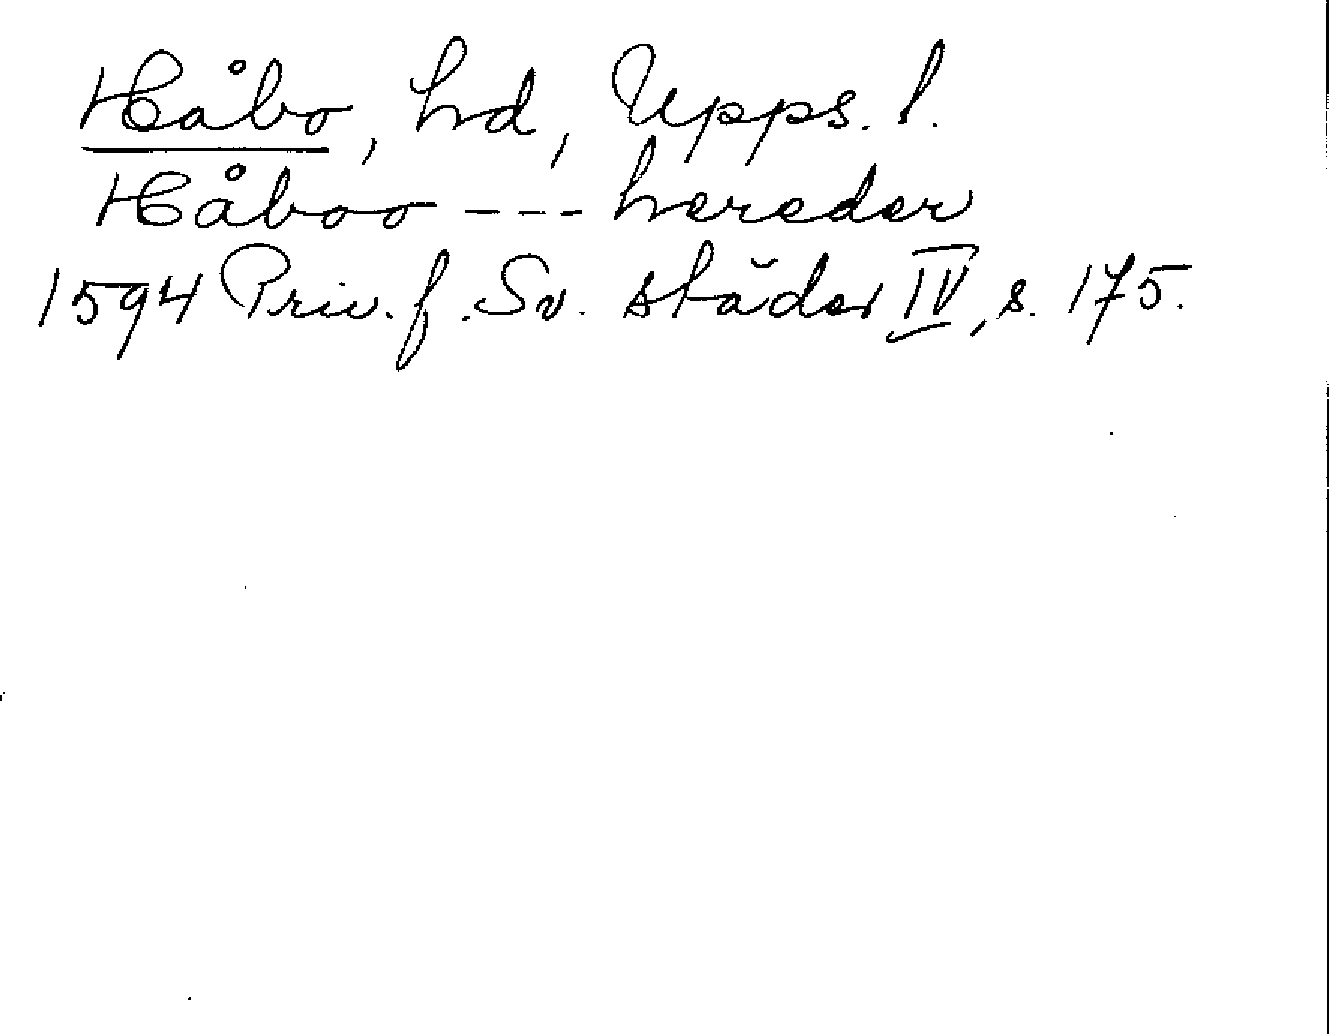 Håbo, hd, Upps. l.
Håboo --- hereder
1594 Priv. f. Sv. städer IV, s. 175.